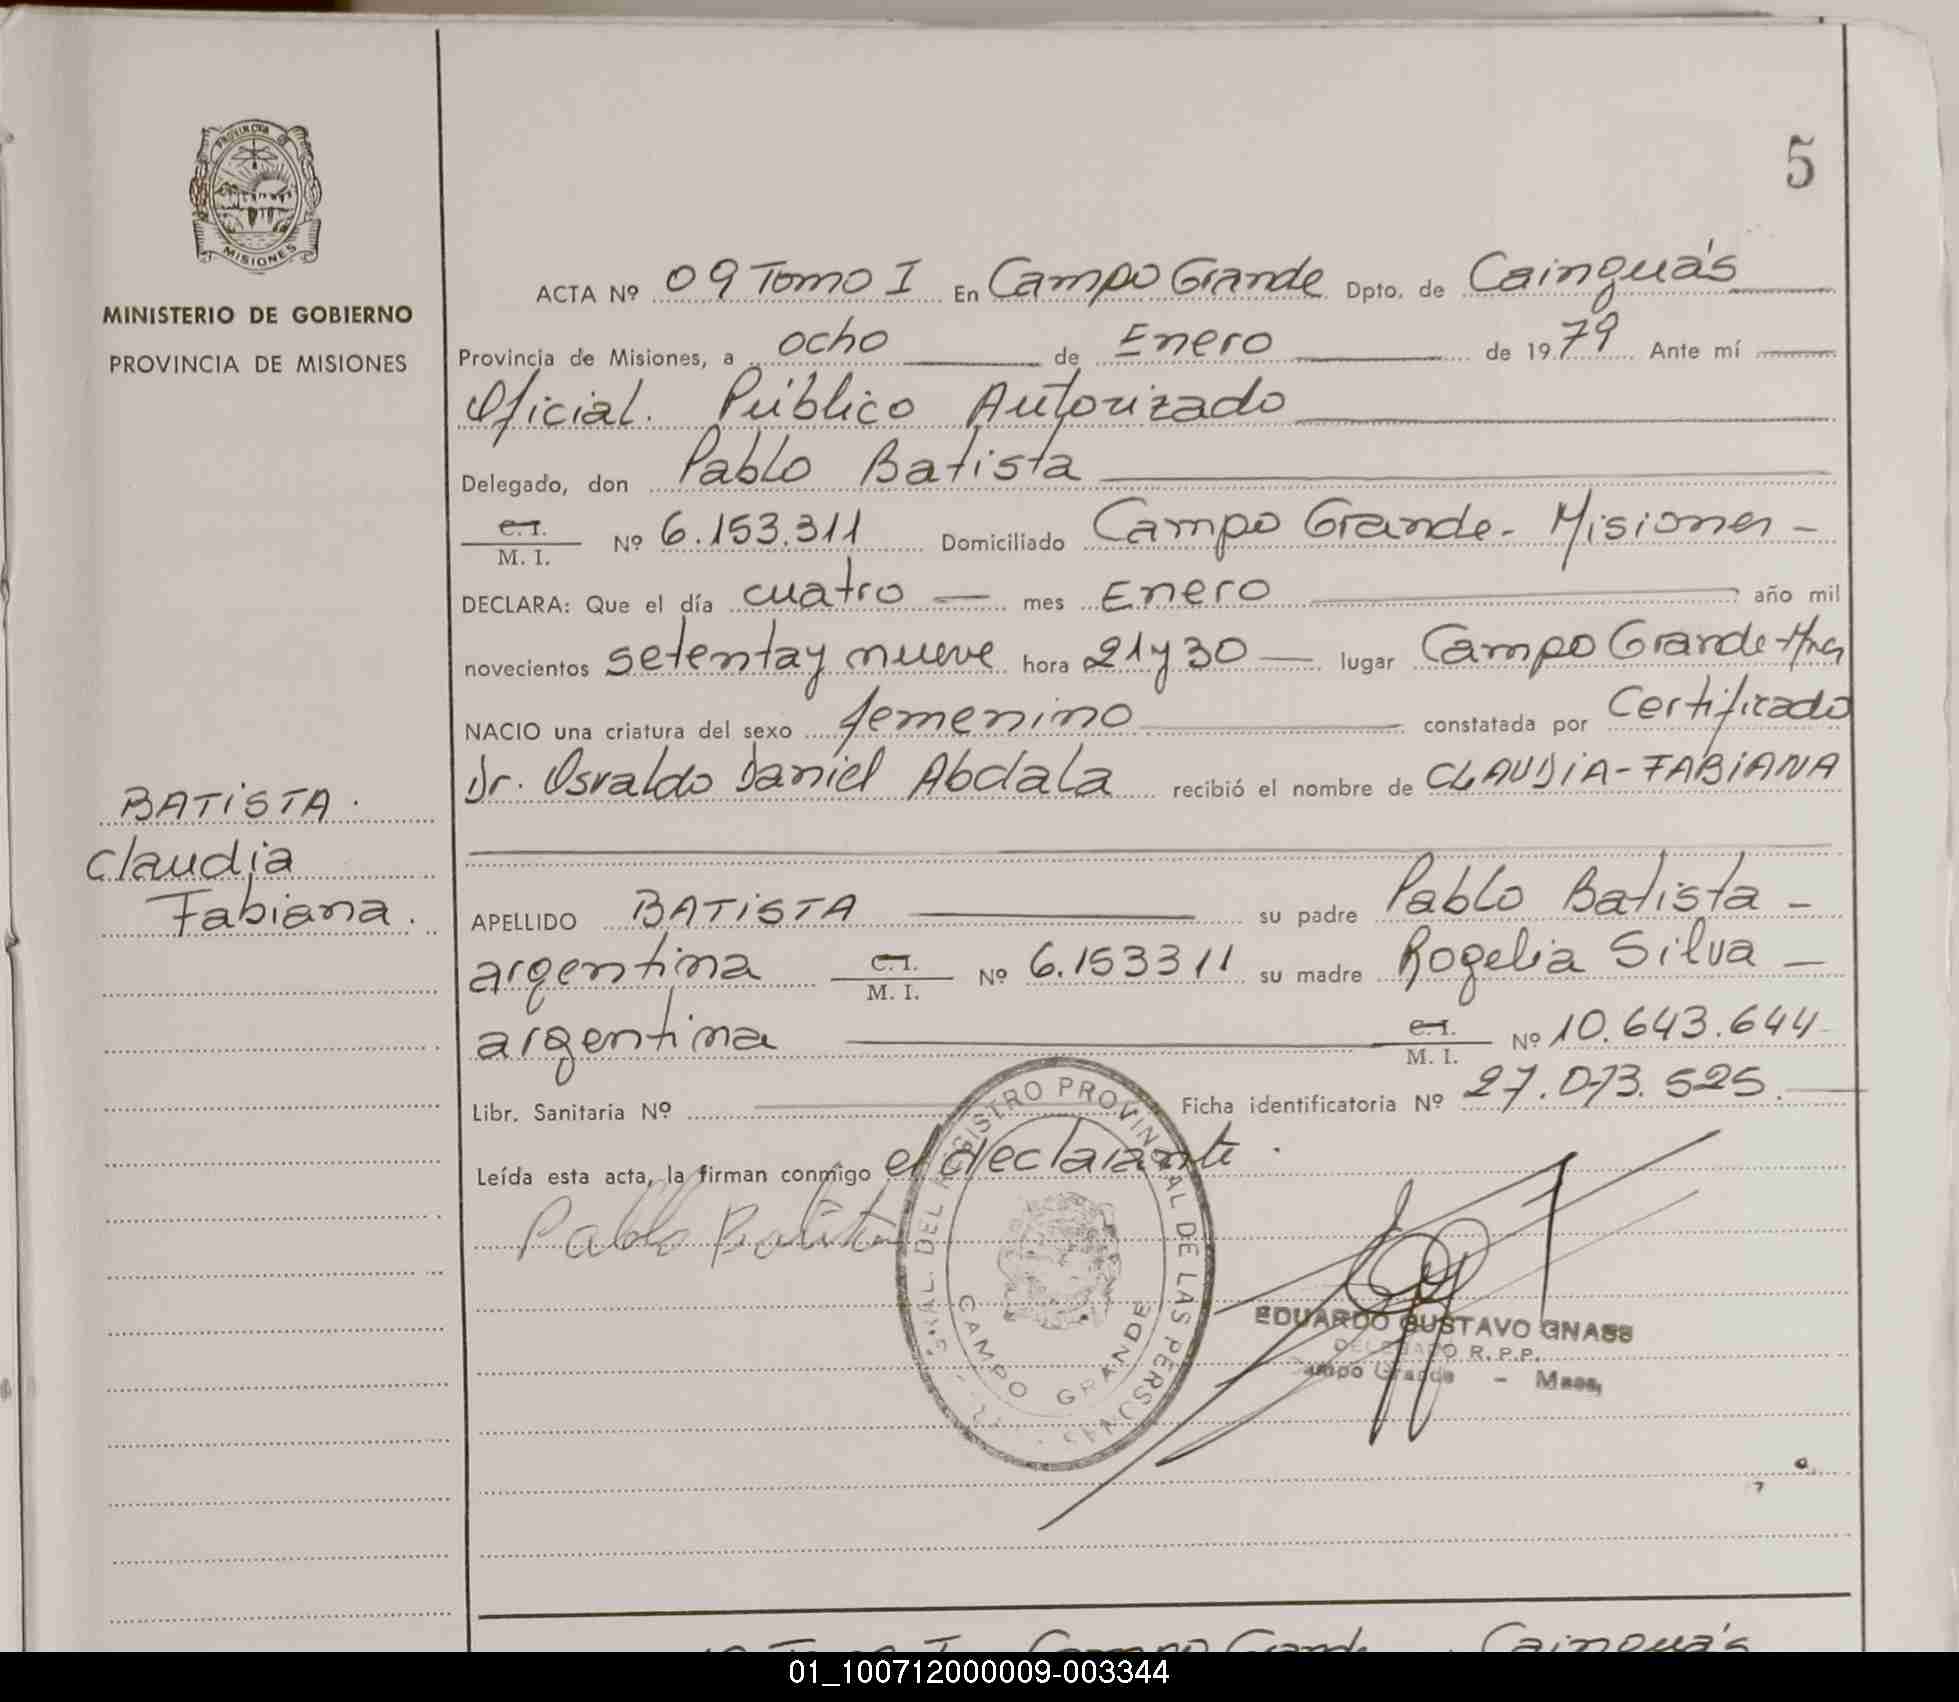 5
PROVINCIA DE
MISIONES
MINISTERIO DE GOBIERNO
PROVINCIA DE MISIONES
BATISTA.
Claudia
Fabiana.
ACTA Nº 09 Tomo I En Campo Grande Dpto. de Cainguás
Provincia de Misiones, a ocho de Enero de 1979 Ante mí
Oficial. Público Autorizado
Delegado, don Pablo Batista
C. I.
M. I. Nº 6.153.311 Domiciliado Campo Grande - Misiones -
DECLARA: Que el día cuatro mes Enero año mil
novecientos setenta y nueve hora 21 y 30 lugar Campo Grande - Mnes
NACIO una criatura del sexo femenino constatada por Certificado
Dr. Osvaldo Daniel Abdala recibió el nombre de CLAUDIA-FABIANA
APELLIDO BATISTA su padre Pablo Batista -
argentina C. I.
M. I. Nº 6.153311 su madre Rogelia Silva -
argentina C. I.
M. I. Nº 10.643.644
Libr. Sanitaria Nº Ficha identificatoria Nº 27.073.525.
Leída esta acta, la firman conmigo el declarante.
Pablo Batista
GRAL. DEL REGISTRO PROVINCIAL DE LAS PERSONAS
CAMPO GRANDE
EDUARDO GUSTAVO GNASS
DELEGADO R. P. P.
Campo Grande - Mnes.
Tomo I Campo Grande Cainguás
01_100712000009-003344